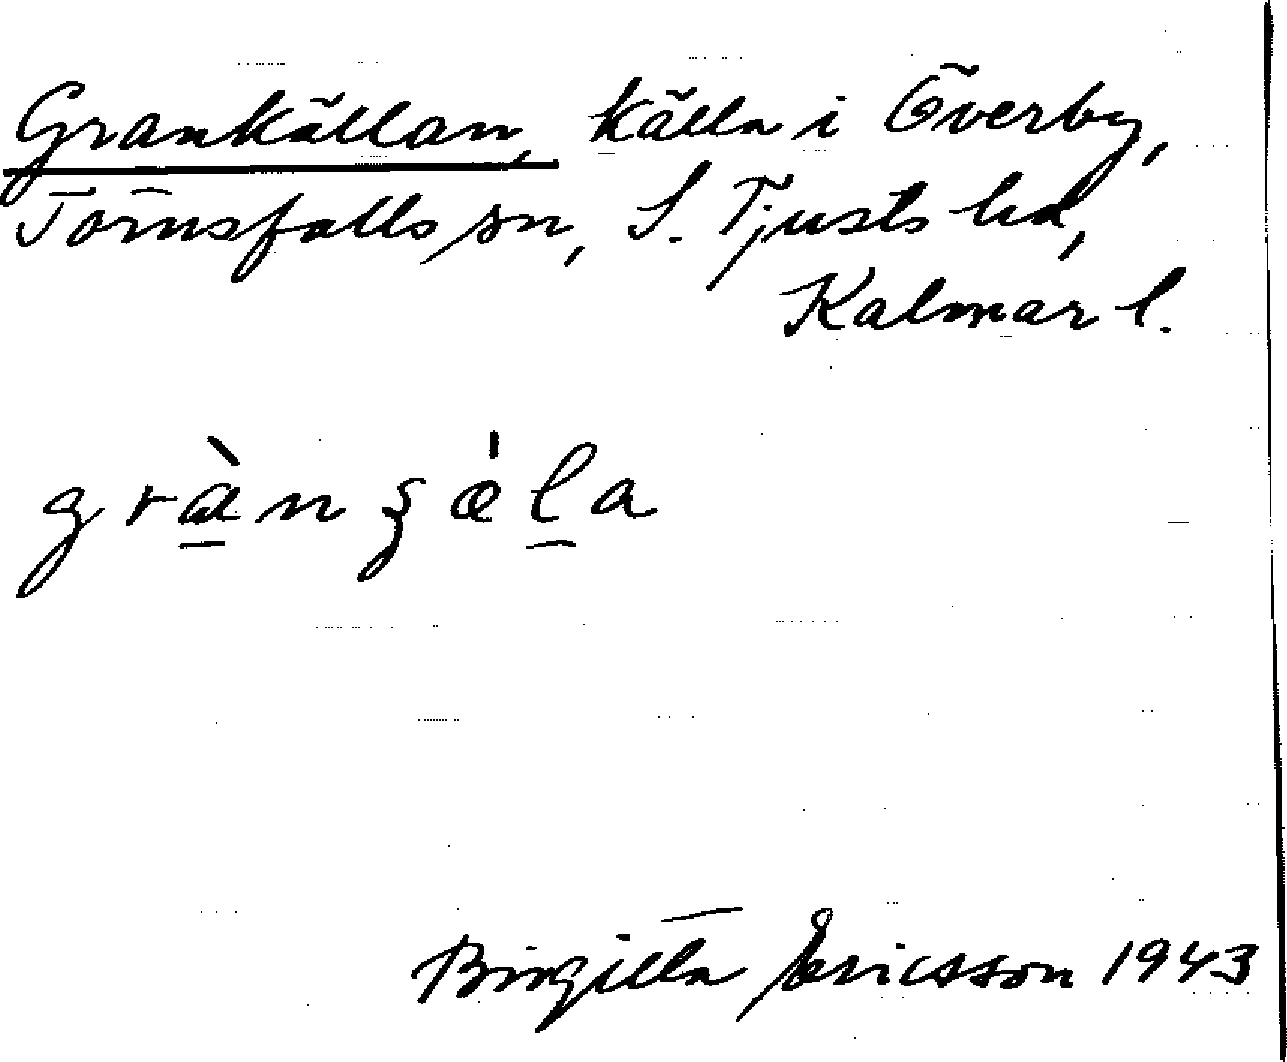 Grankällan, källa i Överby,
Törnsfalls sn, S. Tjusts hd,
Kalmar l.
Birgitta Ericsson 1943